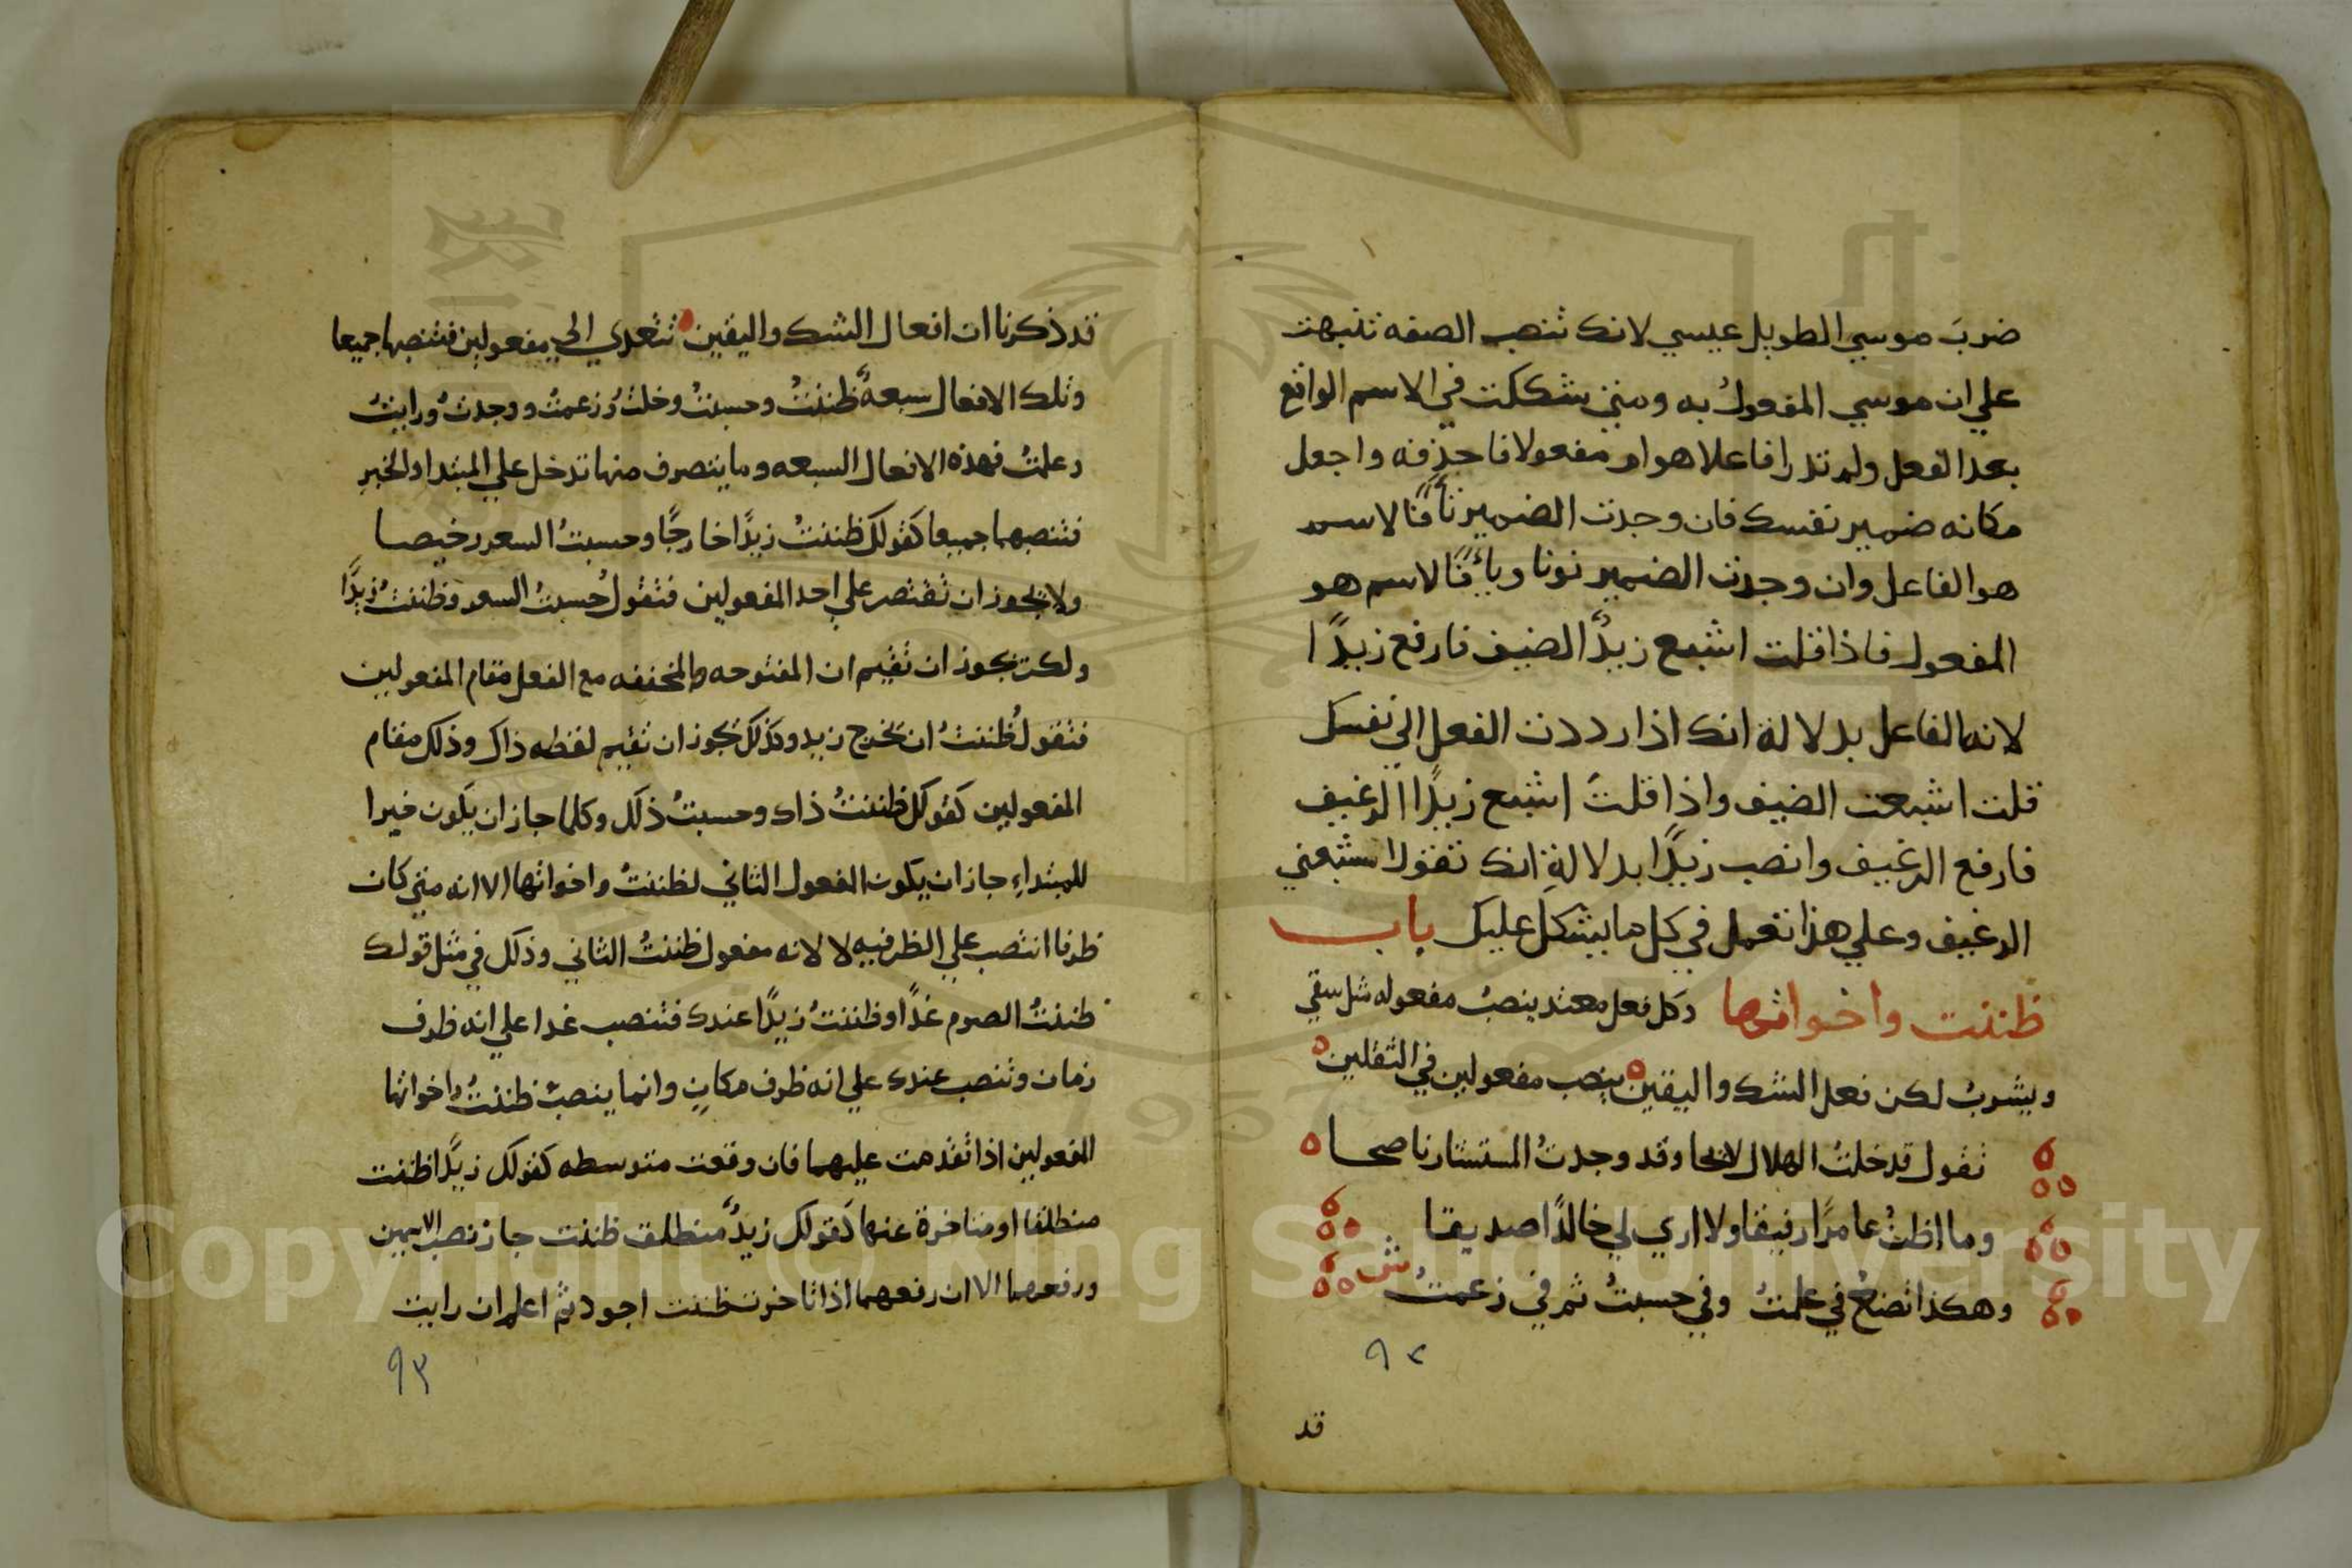 ضربَ موسي الطويل عيسي لانك تنصب الصفه تنبهت
علي ان موسي المفعولُ به ومتي شككت في الاسم الواقع
بعد الفعل ولم تدر افاعلا هو ام مفعولا فاحذفه واجعل
مكانه ضمير نفسك فان وجدت الضمير تاً فالاسم
هو الفاعل وان وجدت الضمير نونا وياً فالاسم هو
المفعول فاذا قلت اشبع زيدٌ الضيف فارفع زيدًا
لانه الفاعل بدلالة انك اذا رددت الفعل الي نفسك
قلت اشبعت الضيف واذا قلتَ اشبع زيدًا الرغيف
فارفع الرغيف وانصب زيدًا بدلالةِ انك تقول اشبعني
الرغيف وعلي هذا تعمل في كل ما يشكل عليك باب
ظننت واخواتها وكل فعل متعد ينصبُ مفعوله مثل سقي
ويشربُ لكن فعل الشك واليقين ينصب مفعولين في التلقين
تقول قد خلتُ الهلال لائحا وقد وجدتُ المستشار ناصحا
وما اظنُ عامرًا رفيقا ولا اري لي خالدًا صديقا
وهكذا تصنعُ في علمتُ وفي حسبتُ ثم في زعمتُ ش
٩٢
قد
قد ذكرنا ان افعال الشك واليقين تتعدي الي مفعولين فتنصبها جميعا
وتلك الافعال سبعةٌ ظننتُ وحسبتُ وخلتُ وزعمتُ ووجدتُ ورايتُ
وعلمتُ فهذه الافعال السبعه وما يتصرف منها تدخل علي المبتدا والخبرِ
فتنصبهما جميعا كقولك ظننتُ زيدًا خارجًا وحسبتُ السعر رخيصا
ولا يجوز ان تقتصر علي احد المفعولين فتقول حسبتُ السعر وظننتُ زيدًا
ولكن يجوز ان تقيم ان المفتوحه والمخففه مع الفعل مقام المفعولين
فتقول ظننتُ ان يخرج زيد وكذلك يجوز ان تقيم لفظه ذاك وذلك مقام
المفعولين كقولك ظننتُ ذاك وحسبتُ ذلك وكلما جاز ان يكون خبرا
للمبتداءِ جاز ان يكون المفعول الثاني لظننتُ واخواتها الا انه متي كان
ظرفا انتصب علي الظرفيه لا لانه مفعول ظننتُ الثاني وذلك في مثل قولك
ظننتُ الصوم غدًا وظننتُ زيدًا عندك فتنصب غدا علي انه ظرف
زمان وتنصب عندك علي انه ظرف مكانٍ وانما ينصبُ ظننتُ واخواتها
المفعولين اذا تقدمت عليهما فان وقعت متوسطه كقولك زيدًا ظننت
منطلقا او متاخرة عنها كقولك زيدٌ منطلق ظننت جاز نصب الاسمين
ورفعهما الا ان رفعهما اذا تاخرت ظننت اجود ثم اعلم ان رايت
٩٣
Copyright © King Saud University
1957